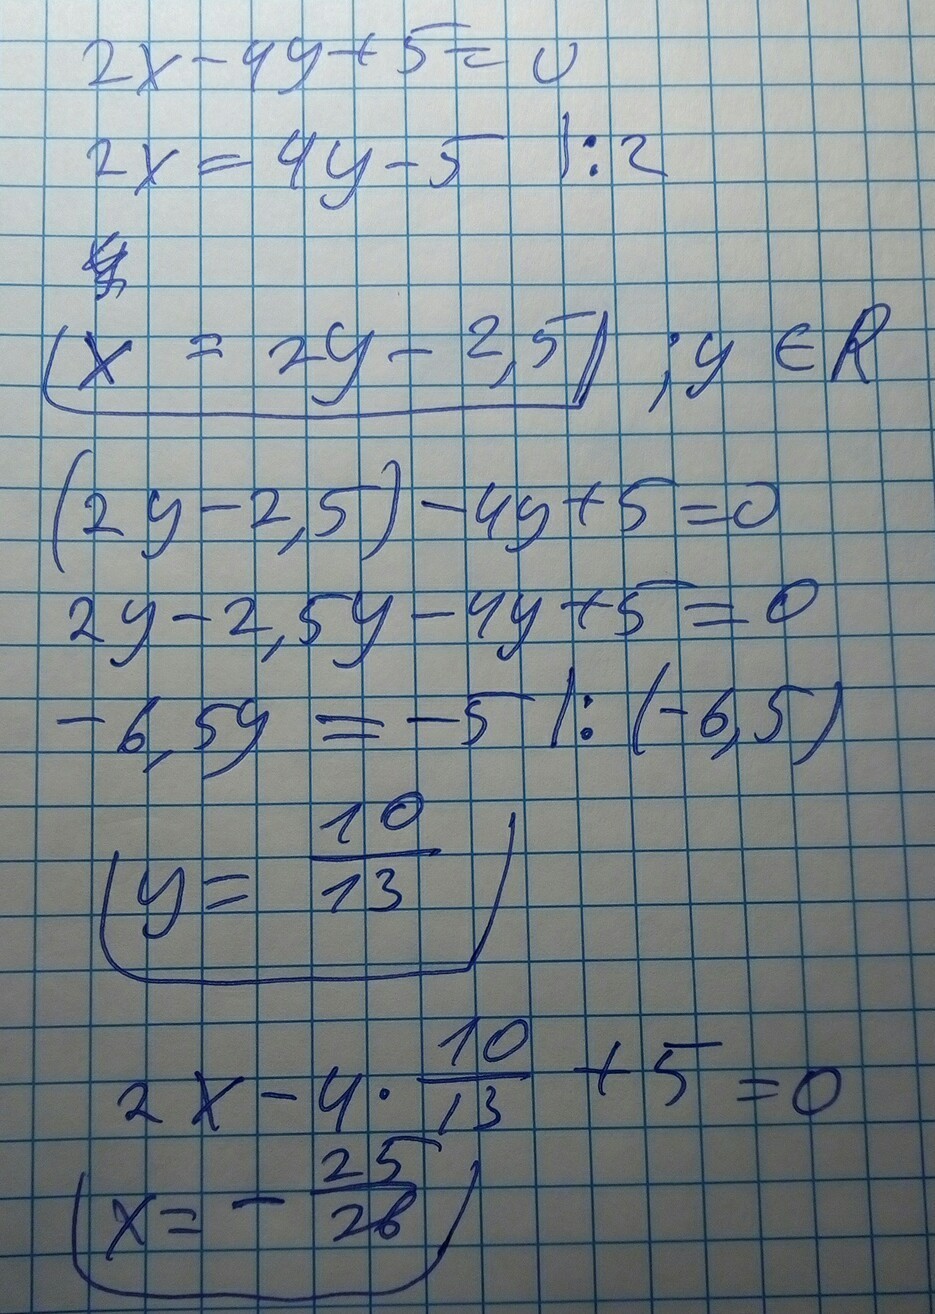 2x - 4y + 5 = 0
2x = 4y - 5 |:2
x = 2y - 2,5 ; y ∈ R
(2y - 2,5) - 4y + 5 = 0
2y - 2,5y - 4y + 5 = 0
-6,5y = -5 |: (-6,5)
y = 10/13
2x - 4 · 10/13 + 5 = 0
x = - 25/26